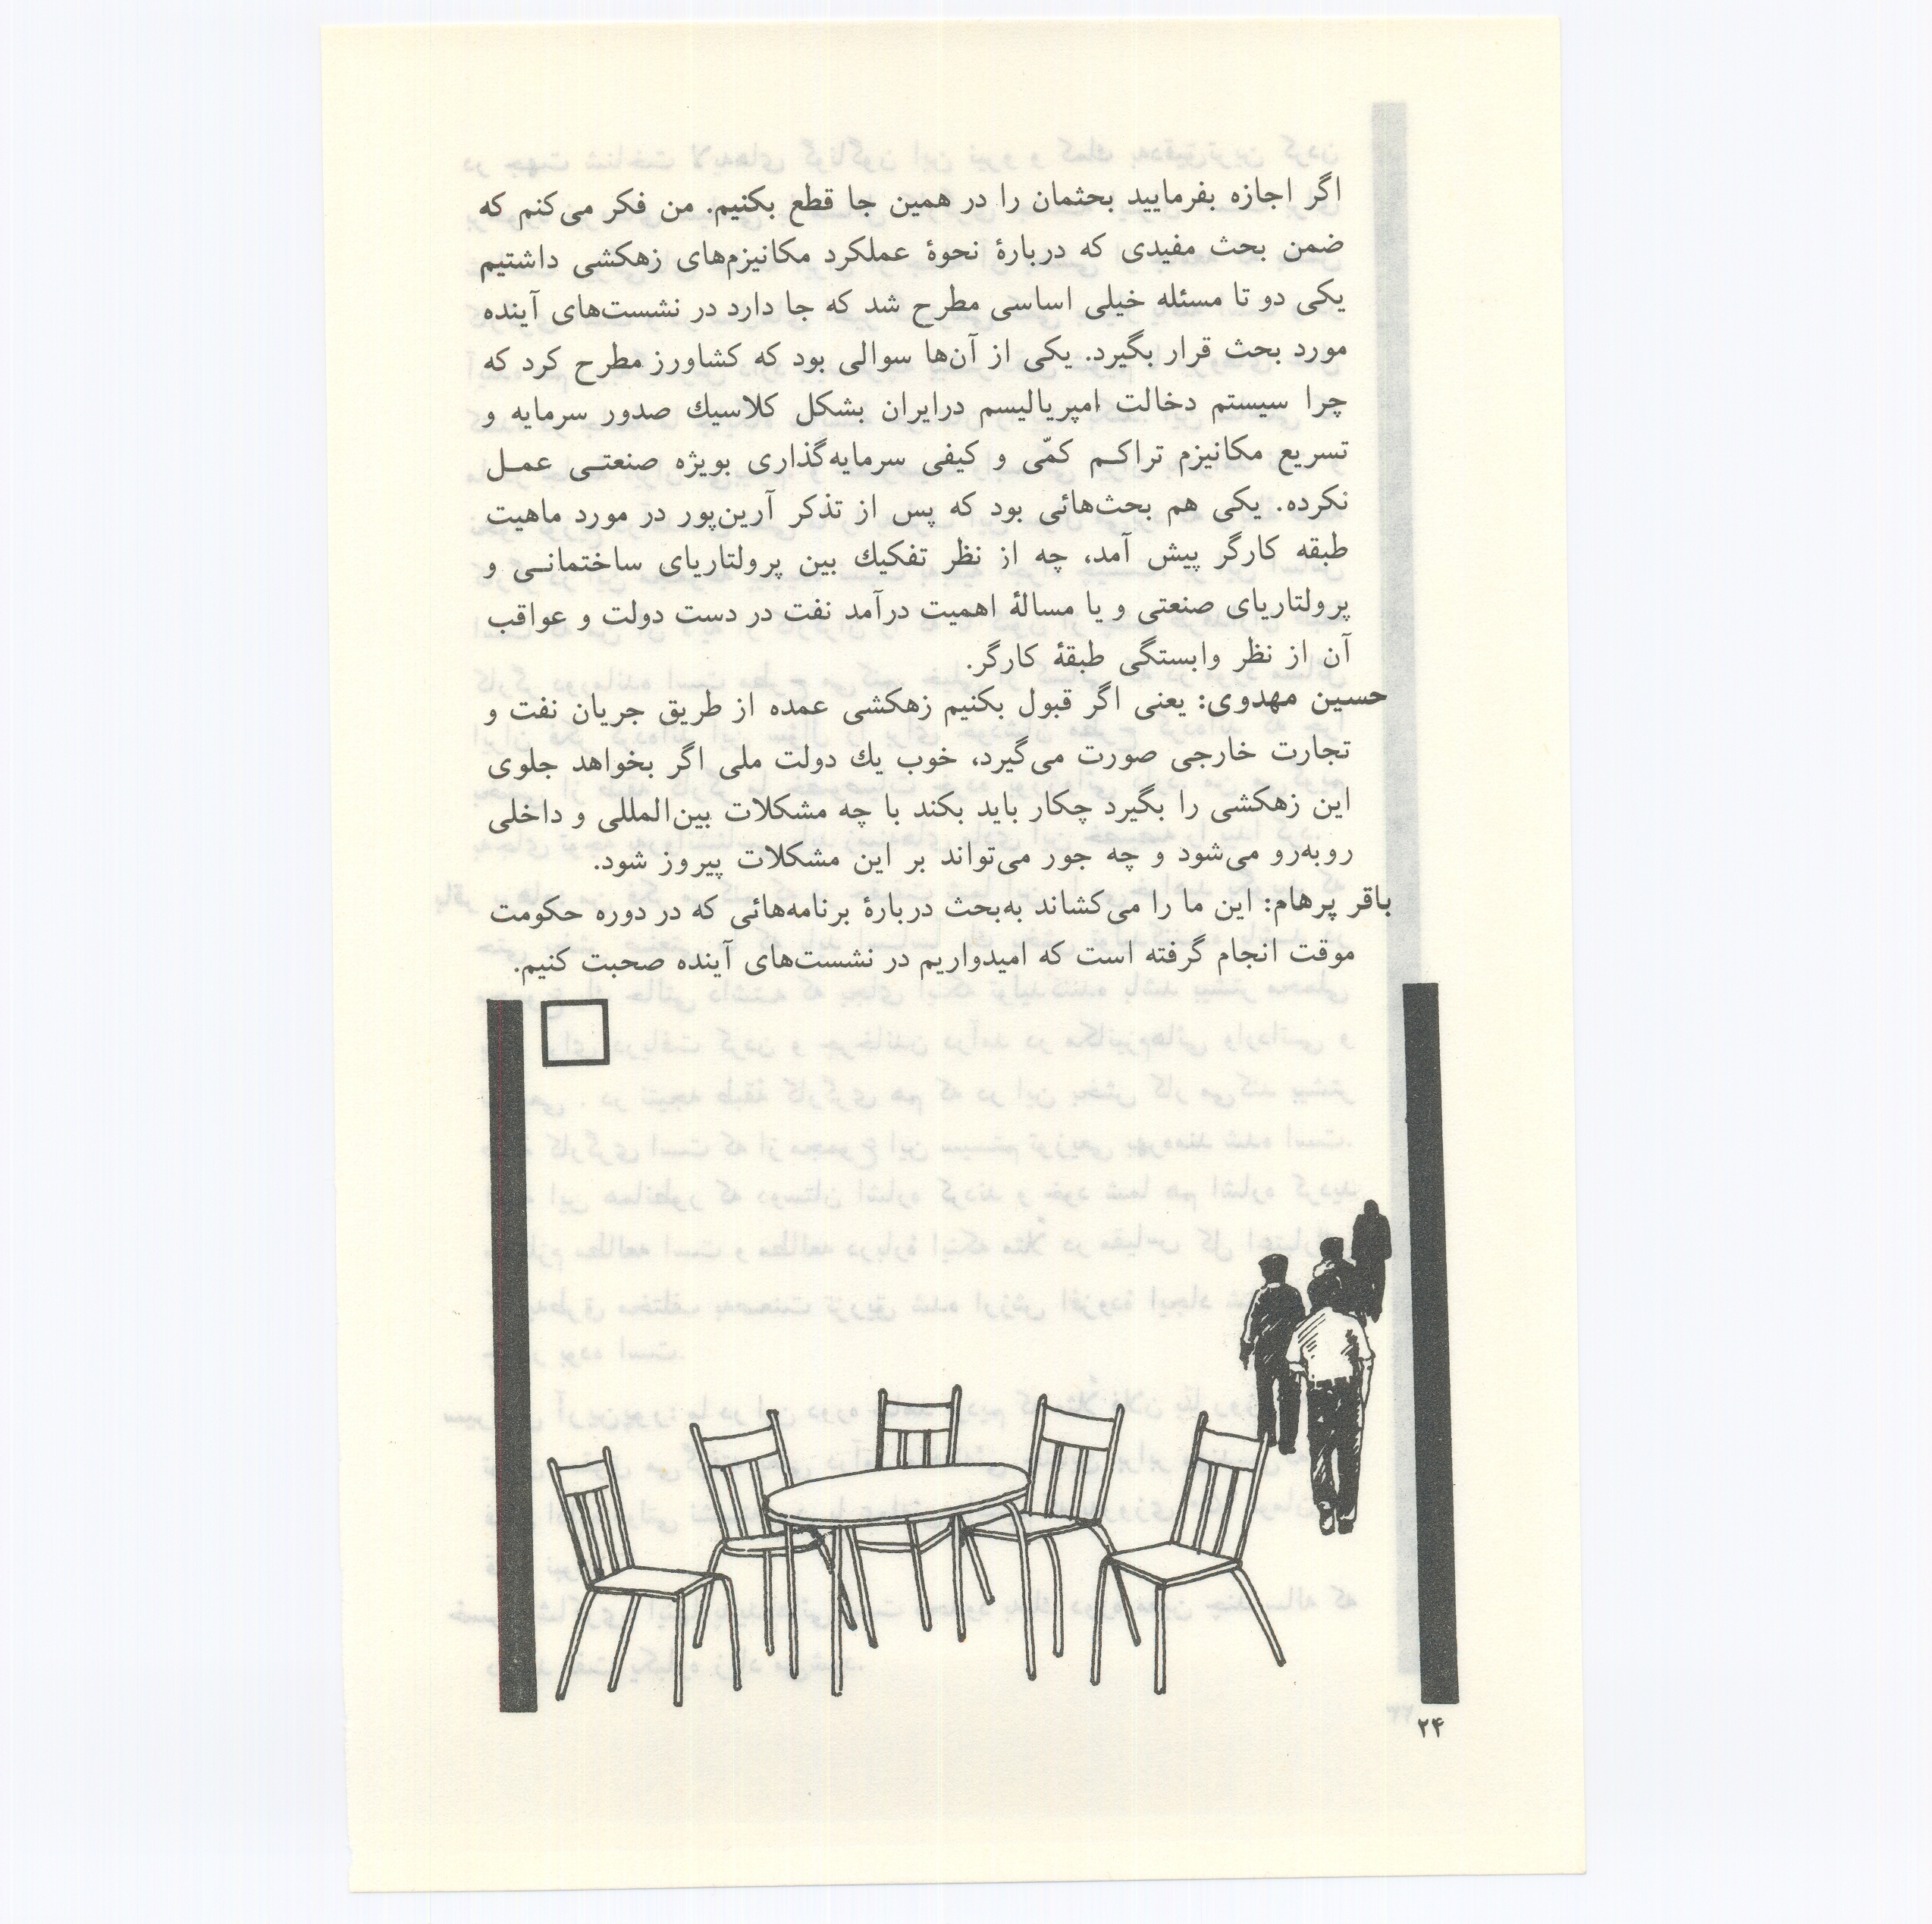 اگر اجازه بفرمایید بحثمان را در همین جا قطع بکنیم. من فکر می‌کنم که
ضمن بحث مفیدی که دربارهٔ نحوهٔ عملکرد مکانیزم‌های زهکشی داشتیم
یکی دو تا مسئله خیلی اساسی مطرح شد که جا دارد در نشست‌های آینده
مورد بحث قرار بگیرد. یکی از آن‌ها سوالی بود که کشاورز مطرح کرد که
چرا سیستم دخالت امپریالیسم درایران بشکل کلاسیك صدور سرمایه و
تسریع مکانیزم تراکـم کمّی و کیفی سرمایه‌گذاری بویژه صنعتـی عمـل
نکرده. یکی هم بحث‌هائی بود که پس از تذکر آرین‌پور در مورد ماهیت
طبقه کارگر پیش آمد، چه از نظر تفکیك بین پرولتاریای ساختمانـی و
پرولتاریای صنعتی و یا مسالهٔ اهمیت درآمد نفت در دست دولت و عواقب
آن از نظر وابستگی طبقهٔ کارگر.
حسین مهدوی: یعنی اگر قبول بکنیم زهکشی عمده از طریق جریان نفت و
تجارت خارجی صورت می‌گیرد، خوب یك دولت ملی اگر بخواهد جلوی
این زهکشی را بگیرد چکار باید بکند با چه مشکلات بین‌المللی و داخلی
روبه‌رو می‌شود و چه جور می‌تواند بر این مشکلات پیروز شود.
باقر پرهام: این ما را می‌کشاند به‌بحث دربارهٔ برنامه‌هائی که در دوره حکومت
موقت انجام گرفته است که امیدواریم در نشست‌های آینده صحبت کنیم.
۲۴